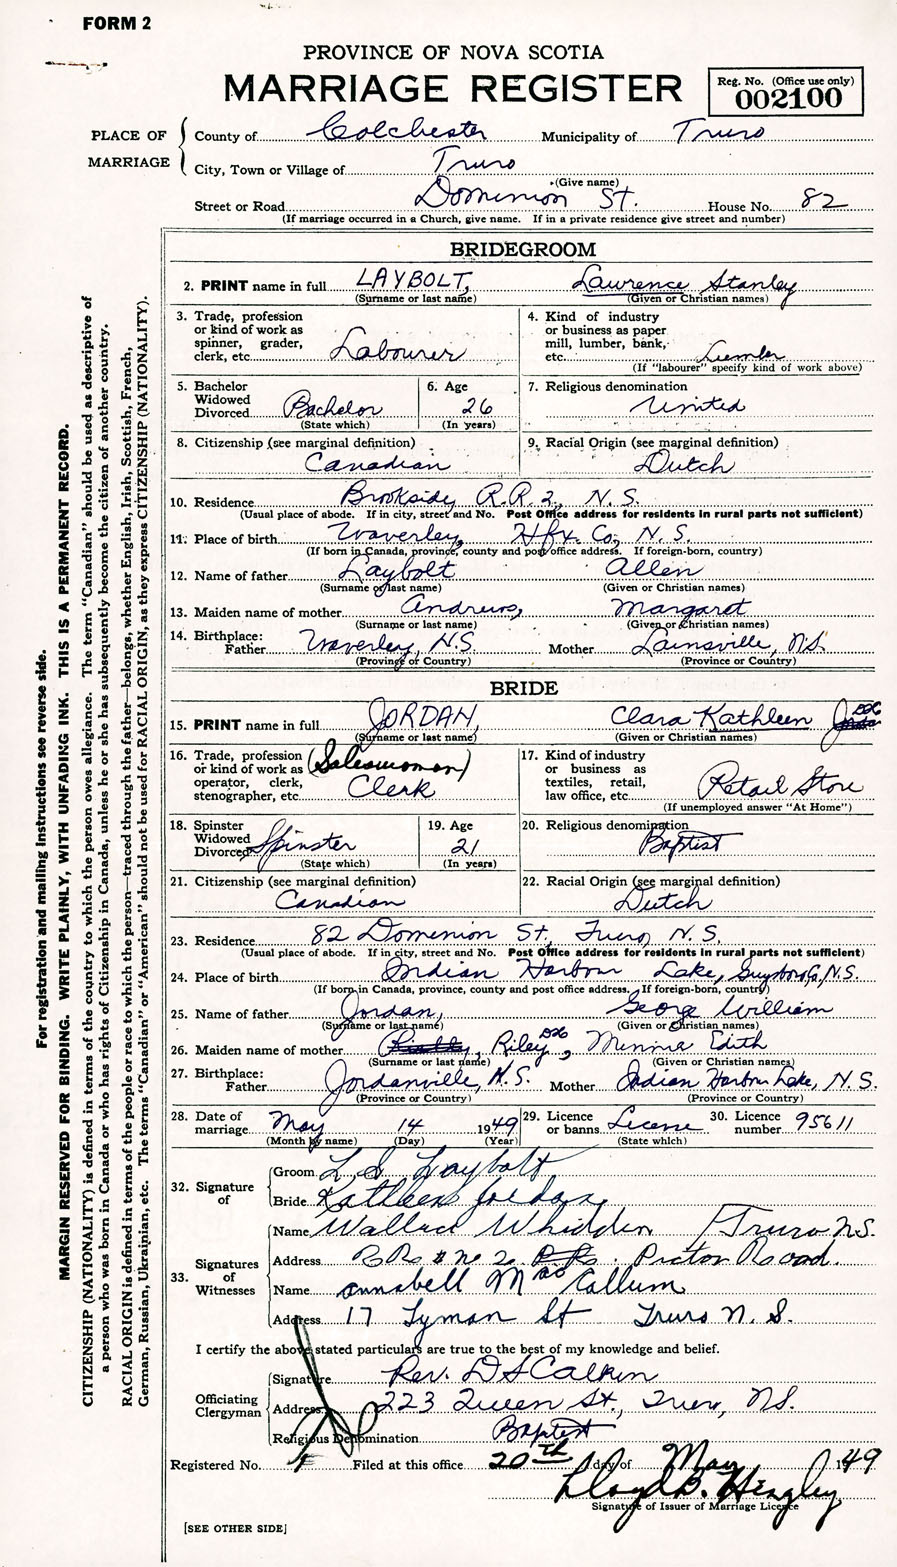 FORM 2
PROVINCE OF NOVA SCOTIA
MARRIAGE REGISTER
Reg. No. (Office use only)
002100
PLACE OF MARRIAGE
County of Colchester Municipality of Truro
City, Town or Village of Truro
(Give name)
Street or Road Dominion St. House No. 82
(If marriage occurred in a Church, give name. If in a private residence give street and number)
BRIDEGROOM
2. PRINT name in full LAYBOLT, Lawrence Stanley
(Surname or last name) (Given or Christian names)
3. Trade, profession or kind of work as spinner, grader, clerk, etc. Labourer
4. Kind of industry or business as paper mill, lumber, bank, etc. Lumber
(If "labourer" specify kind of work above)
5. Bachelor Widowed Divorced Bachelor
(State which)
6. Age 26
(In years)
7. Religious denomination United
8. Citizenship (see marginal definition) Canadian
9. Racial Origin (see marginal definition) Dutch
10. Residence Brookside R.R. 2, N.S.
(Usual place of abode. If in city, street and No. Post Office address for residents in rural parts not sufficient)
11. Place of birth Waverley, Hfx. Co. N.S.
(If born in Canada, province, county and post office address. If foreign-born, country)
12. Name of father Laybolt Allen
(Surname or last name) (Given or Christian names)
13. Maiden name of mother Andrews, Margaret
(Surname or last name) (Given or Christian names)
14. Birthplace:
Father Waverley, N.S. Mother Lainsville, N.S.
(Province or Country) (Province or Country)
BRIDE
15. PRINT name in full JORDAN, Clara Kathleen
(Surname or last name) (Given or Christian names)
16. Trade, profession or kind of work as operator, clerk, stenographer, etc. (Saleswoman) Clerk
17. Kind of industry or business as textiles, retail, law office, etc. Retail Store
(If unemployed answer "At Home")
18. Spinster Widowed Divorced Spinster
(State which)
19. Age 21
(In years)
20. Religious denomination Baptist
21. Citizenship (see marginal definition) Canadian
22. Racial Origin (see marginal definition) Dutch
23. Residence 82 Dominion St, Truro, N.S.
(Usual place of abode. If in city, street and No. Post Office address for residents in rural parts not sufficient)
24. Place of birth Indian Harbour Lake, Guysboro Co, N.S.
(If born in Canada, province, county and post office address. If foreign-born, country)
25. Name of father Jordan, George William
(Surname or last name) (Given or Christian names)
26. Maiden name of mother Riley, Minnie Edith
(Surname or last name) (Given or Christian names)
27. Birthplace:
Father Jordanville, N.S. Mother Indian Harbour Lake, N.S.
(Province or Country) (Province or Country)
28. Date of marriage May 14 1949
(Month by name) (Day) (Year)
29. Licence or banns License
(State which)
30. Licence number 95611
32. Signature of
Groom L S Laybolt
Bride Kathleen Jordan
33. Signatures of Witnesses
Name Wallace Whidden Truro N.S.
Address R R # No 2 Pictou Road.
Name Annabell MacCallum
Address 17 Lyman St Truro N.S.
I certify the above stated particulars are true to the best of my knowledge and belief.
Officiating Clergyman
Signature Rev. D S Calkin
Address 223 Queen St., Truro, N.S.
Religious Denomination Baptist
Registered No. Filed at this office 20th day of May 1949
Lloyd B. Hengley
Signature of Issuer of Marriage Licence
[SEE OTHER SIDE]
For registration and mailing instructions see reverse side.
MARGIN RESERVED FOR BINDING. WRITE PLAINLY, WITH UNFADING INK. THIS IS A PERMANENT RECORD.
CITIZENSHIP (NATIONALITY) is defined in terms of the country to which the person owes allegiance. The term "Canadian" should be used as descriptive of
a person who was born in Canada or who has rights of Citizenship in Canada, unless he or she has subsequently become the citizen of another country.
RACIAL ORIGIN is defined in terms of the people or race to which the person—traced through the father—belongs, whether English, Irish, Scottish, French,
German, Russian, Ukrainian, etc. The terms "Canadian" or "American" should not be used for RACIAL ORIGIN, as they express CITIZENSHIP (NATIONALITY).